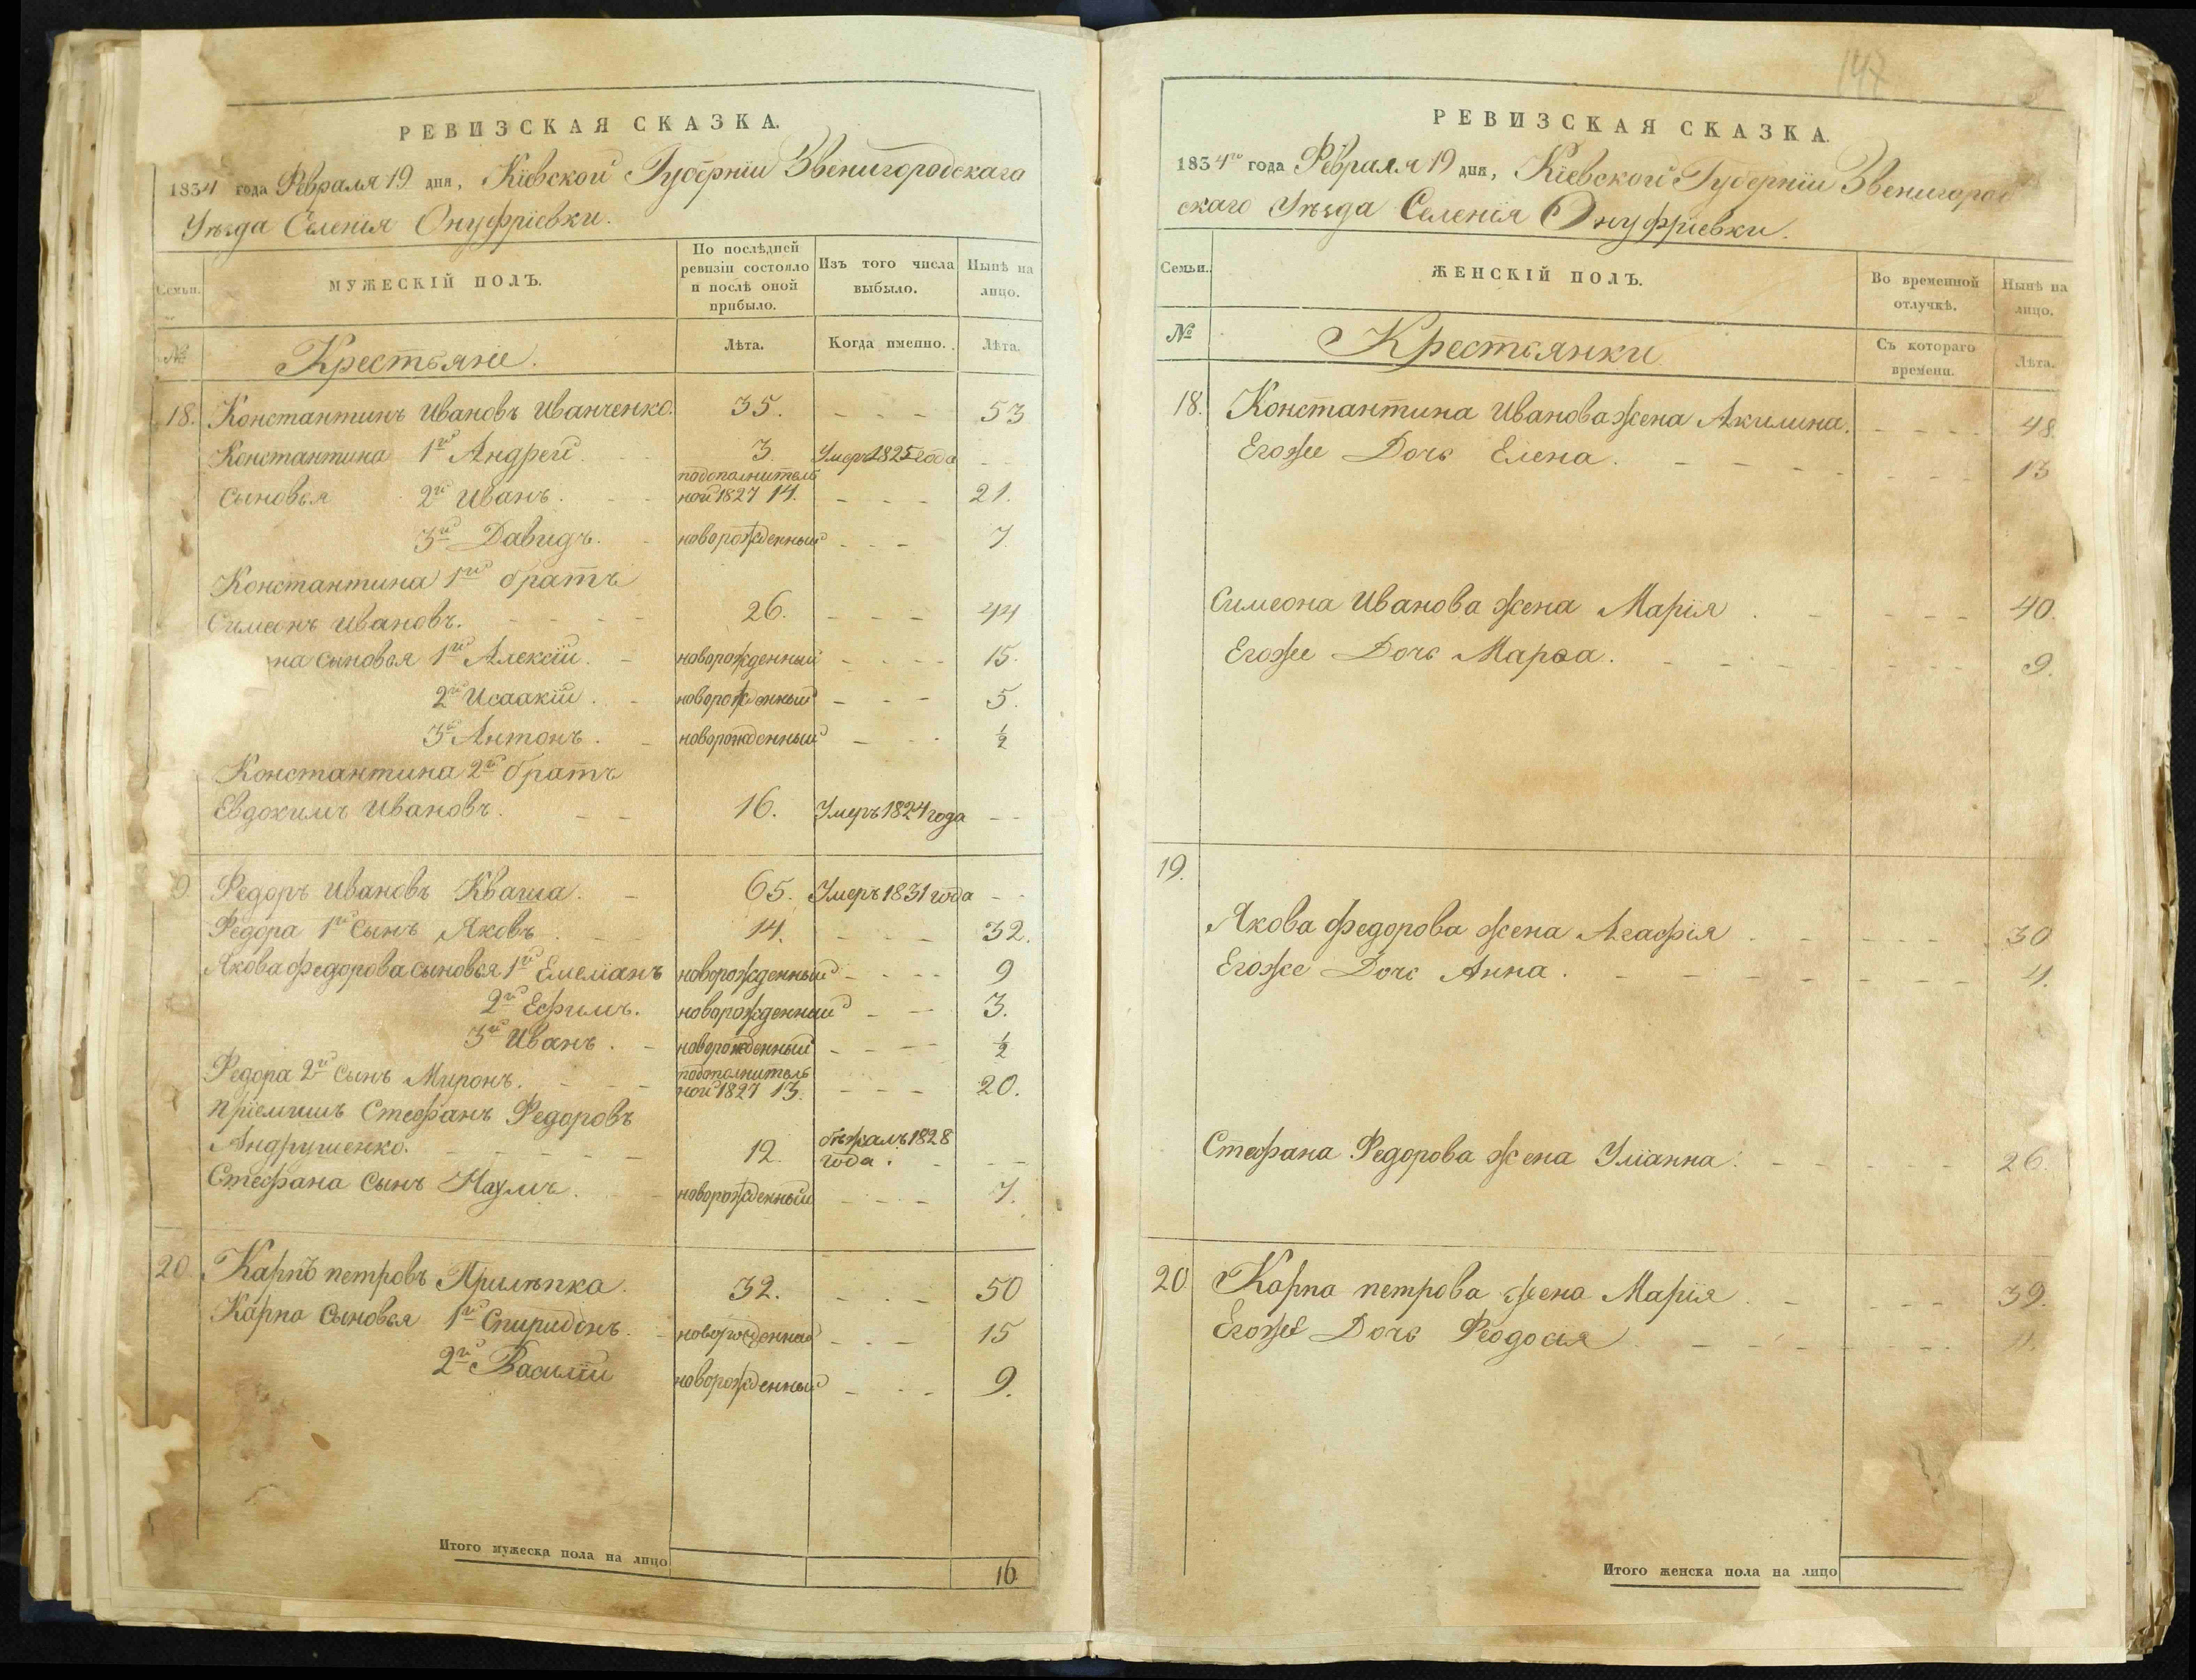 РЕВИЗСКАЯ СКАЗКА.
1834 года Февраля 19 дня, Кіевской Губерніи Звенигородскаго
Уѣзда Селенія Онуфріевки.
Семьи.
МУЖЕСКІЙ ПОЛЪ.
По послѣдней ревизіи состояло и послѣ оной прибыло.
Изъ того числа выбыло.
Нынѣ на лицо.
№
Крестьяне.
Лѣта.
Когда именно.
Лѣта.
18. Константинъ Ивановъ Иванченко. 35. - - - 53
Константина 1й Андрей. 3. Умеръ 1825 года - -
сыновья 2й Иванъ. подополнительной 1827 14. - - - 21.
3й Давидъ. новорожденный - - - 7.
Константина 1й братъ
Симеонъ Ивановъ. 26. - - - 44
на сыновья 1й Алексій. новорожденный - - - 15.
2й Исаакій. новорожденный - - - 5.
3й Антонъ. новорожденный - - ½
Константина 2й братъ
Евдокимъ Ивановъ. 16. Умеръ 1824 года - -
9. Федоръ Ивановъ Кваша. 65. Умеръ 1831 года - -
Федора 1й сынъ Яковъ. 14. - - - 32.
Якова Федорова сыновья 1й Емеліанъ новорожденный - - - 9
2й Ефимъ. новорожденный - - 3.
3й Иванъ. новорожденный - - - ½
Федора 2й сынъ Миронъ. подополнительной 1827 13. - - - 20.
Пріемышъ Стефанъ Федоровъ
Андрушенко. 12. бѣжалъ 1828 года. - -
Стефана сынъ Наумъ. новорожденный - - - 7.
20. Карпъ Петровъ Прилѣпка. 32. - - - 50
Карпа сыновья 1й Спиридонъ. новорожденный - - - 15
2й Василій новорожденный - - - 9.
Итого мужеска пола на лицо 16
147
РЕВИЗСКАЯ СКАЗКА.
1834го года Февраля 19 дня, Кіевской Губерніи Звенигород
скаго Уѣзда Селенія Онуфріевки.
Семьи.
ЖЕНСКІЙ ПОЛЪ.
Во временной отлучкѣ.
Нынѣ на лицо.
№
Крестьянки
Съ котораго времени.
Лѣта.
18. Константина Иванова жена Акилина. - - - - 48.
Егоже Дочь Елена. - - - - 13
Симеона Иванова жена Марія. - - - - 40.
Егоже Дочь Марѳа. - - - - 9.
19.
Якова Федорова жена Агафія. - - - - 30
Егоже Дочь Анна. - - - - 4.
Стефана Федорова жена Уліанна. - - - - 26.
20 Карпа Петрова жена Марія. - - - - 39.
Егоже Дочь Феодосія - - - - 11.
Итого женска пола на лицо